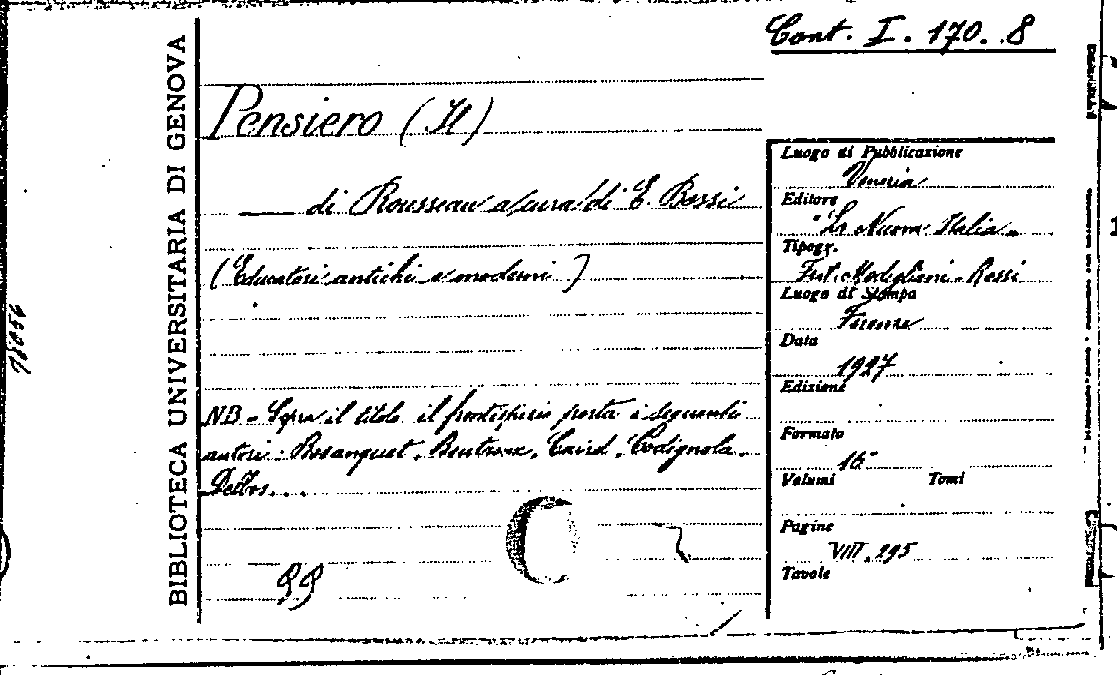 Cont. I. 170. 8
BIBLIOTECA UNIVERSITARIA DI GENOVA
Pensiero (Il)
di Rousseau a cura di E. Bossi
(Educatori antichi e moderni)
NB - Sopra il titolo il frontispizio porta i seguenti
autori: Bosanquet, Boutroux, Caird, Codignola
Delbos...
Luogo di Pubblicazione
Venezia
Editore
"La Nuova Italia"
Tipogr.
Modigliani - Rossi
Luogo di Stampa
Firenze
Data
1927
Edizione
Formato
16°
Volumi Tomi
Pagine
VIII, 295
Tavole
78056